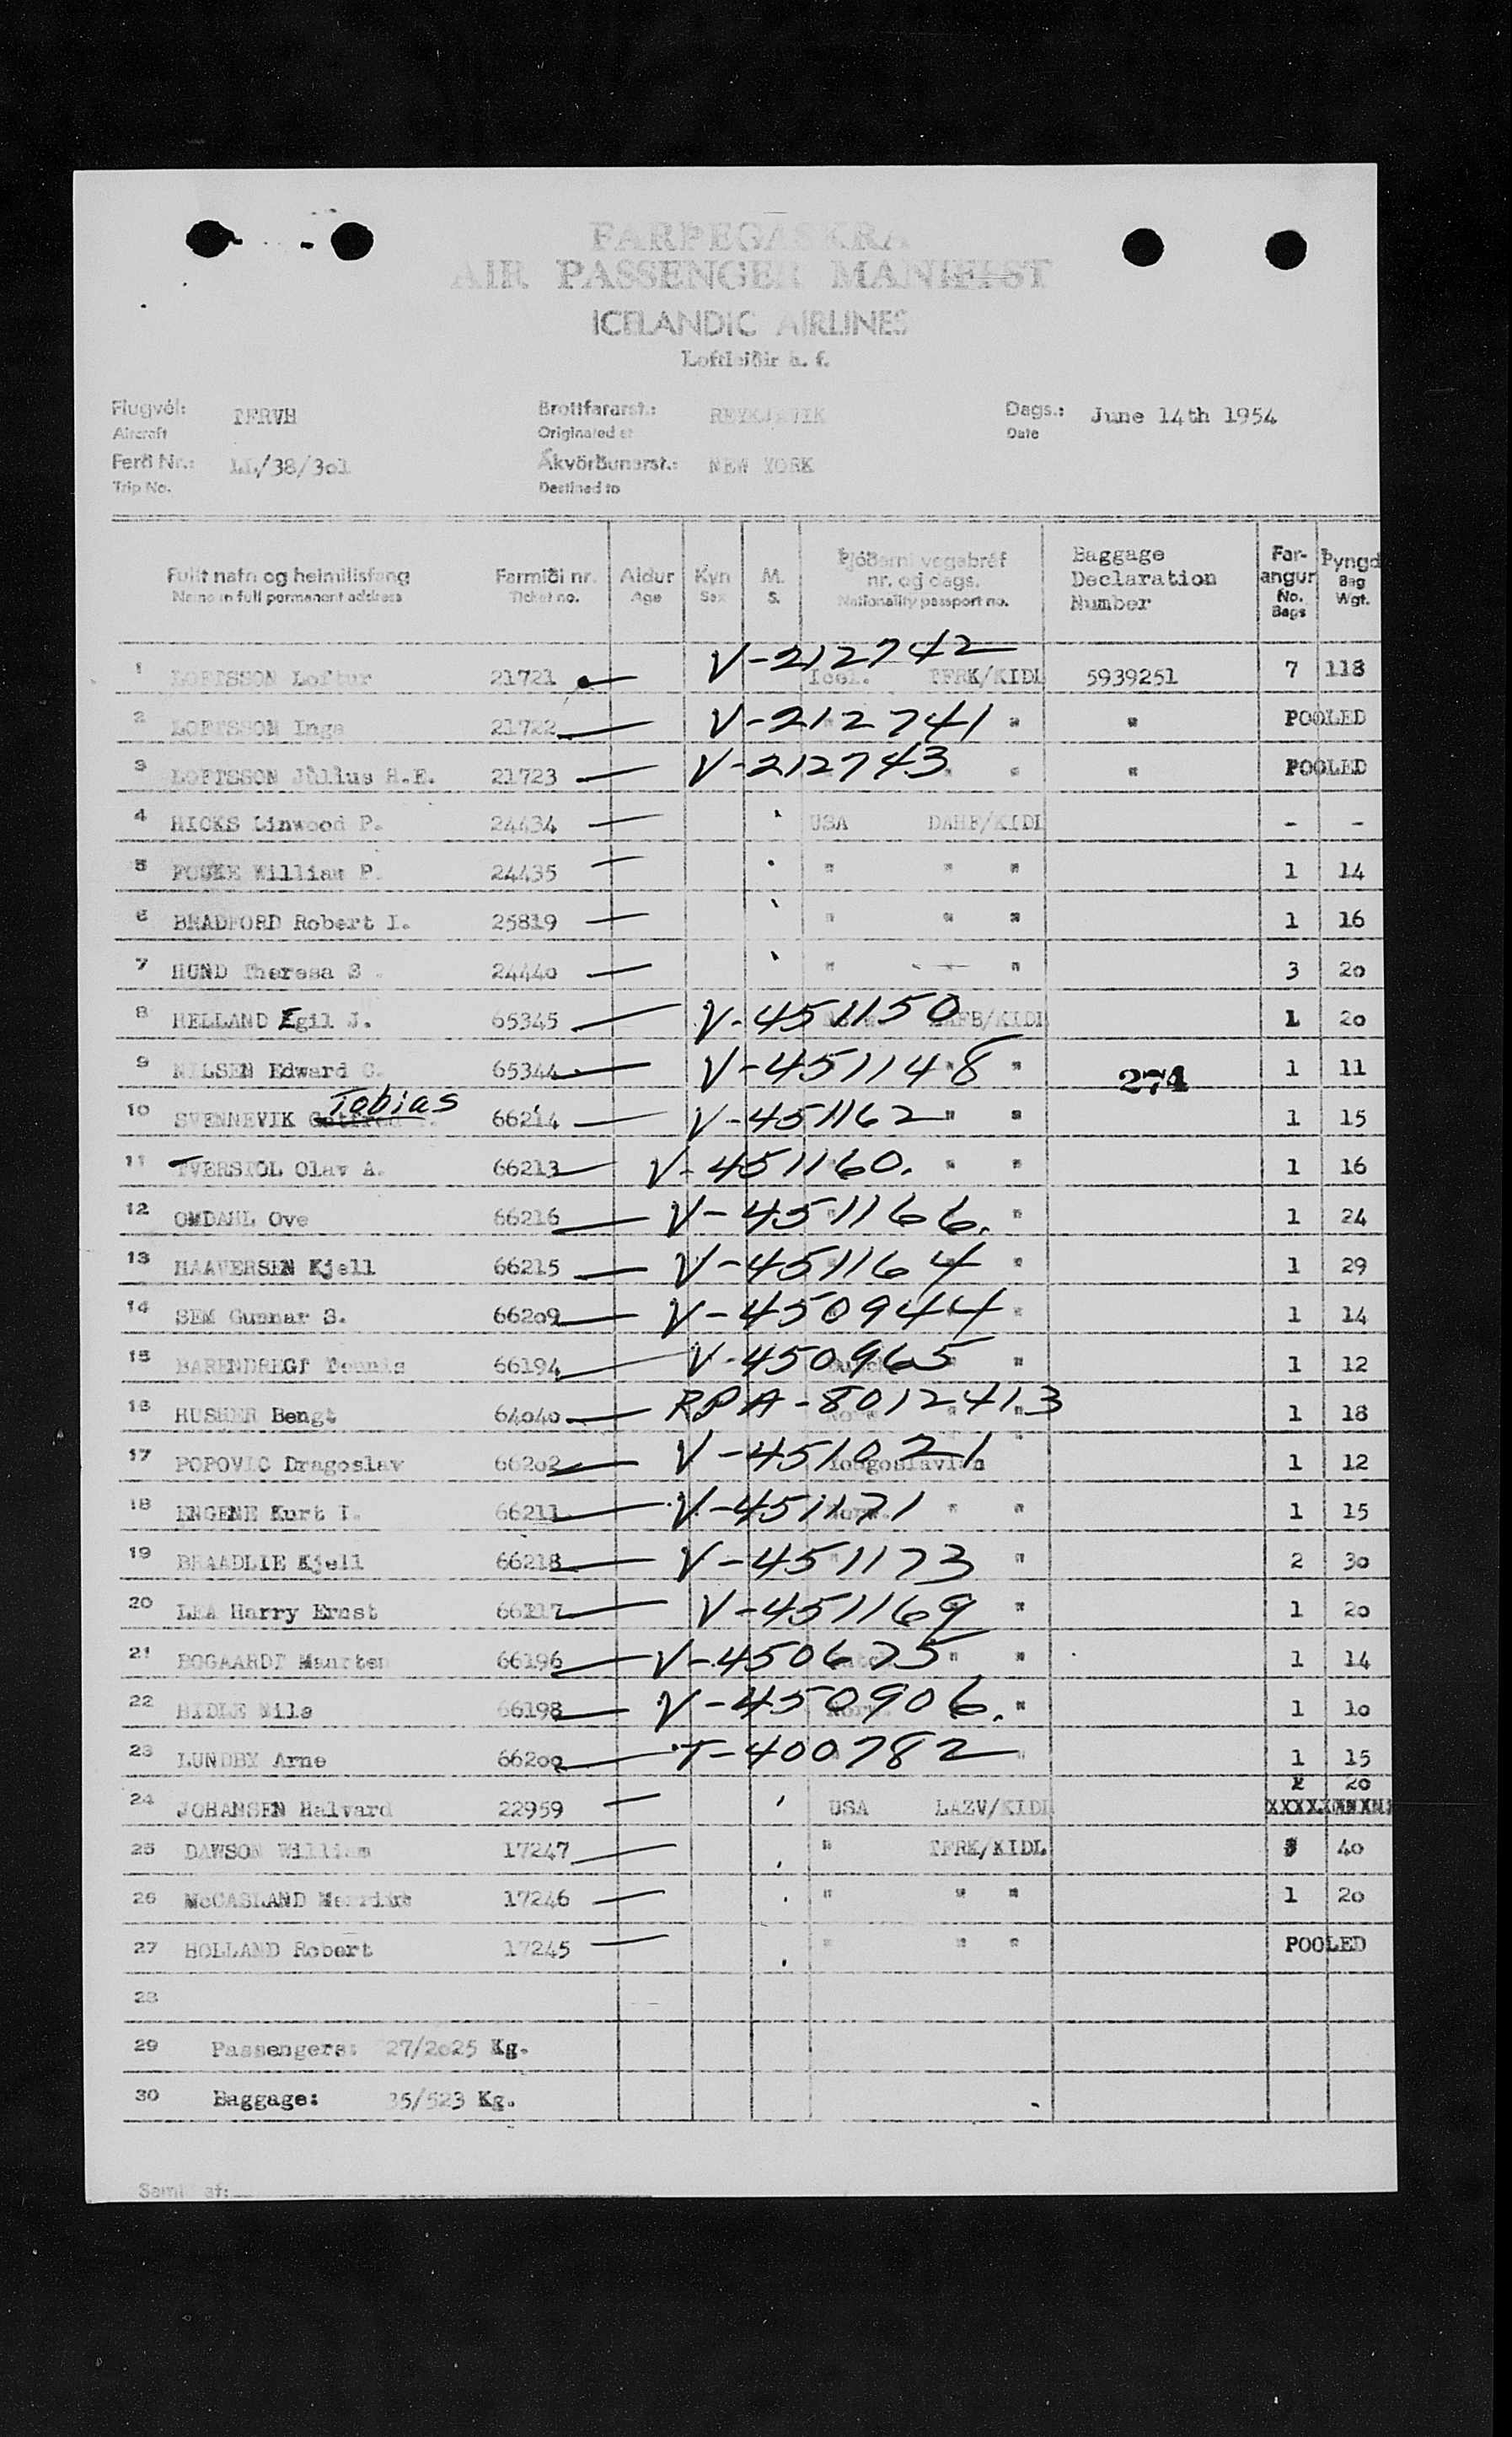 FARÞEGASKRA
AIR PASSENGER MANIFEST
ICELANDIC AIRLINES
Loftleiðir h. f.
Flugvél: TFRVH Brottfararst.: REYKJAVIK Dags.: June 14th 1954
Aircraft Originated at Date
Ferð Nr.: LL/38/3o1 Ákvörðunarst.: NEW YORK
Trip No. Destined to
Fullt nafn og heimilisfang Farmiði nr. Aldur Kyn M. Þjóðerni vegabréf nr. og dags. Baggage Declaration Number Far-angur Þyngd
Name in full permanent address Ticket no. Age Sex S. Nationality passport no. No. Bags Bag Wgt.
1 LOFTSSON Loftur 21721 V-212742 Icel. TFRK/KIDL 5939251 7 118
2 LOFTSSON Inga 21722 V-212741 " " POOLED
3 LOFTSSON Júlíus H.E. 21723 V-212743 " " " POOLED
4 HICKS Linwood P. 24434 USA DAHF/KIDL - -
5 William P. 24435 " " " 1 14
6 BRADFORD Robert I. 25819 " " " 1 16
7 HUND Theresa S 2444o " " 3 2o
8 HELLAND Egil J. 65345 V-451150 /KIDL 1 2o
9 NILSEN Edward C. 65344 V-451148 " " 274 1 11
10 SVENNEVIK Tobias 66214 V-451162 " " 1 15
11 TVERSTOL Olav A. 66213 V-451160. " " 1 16
12 OMDAHL Ove 66216 V-451166. " 1 24
13 HAAVERSEN Kjell 66215 V-451164 " 1 29
14 SEM Gunnar S. 662o9 V-450944 " 1 14
15 BARENDREGT Teunis 66194 V-450965 " " 1 12
16 Bengt 64o4o RPA-8012413 " 1 18
17 POPOVIC Dragoslav 662o2 V-451021 Yougoslavian " 1 12
18 ENGENE Kurt I. 66211 V-451171 Norw. " " 1 15
19 BRAADLIE Kjell 66218 V-451173 " 2 3o
20 LEA Harry Ernst 66217 V-451169 " 1 2o
21 BOGAARDT Maarten 66196 V-450675 Dutch " " 1 14
22 Nils 66198 V-450906. Norw. " 1 1o
23 LUNDBY Arne 662oo T-400782 " 1 15
2o
24 JOHANSEN Halvard 22959 USA LAZV/KIDL XXXXXXXXXX
25 DAWSON William 17247 " TFRK/KIDL 4o
26 McCASLAND 17246 " " " 1 2o
27 HOLLAND Robert 17245 " " " POOLED
28
29 Passengers: 27/2o25 Kg.
30 Baggage: 35/523 Kg.
af: